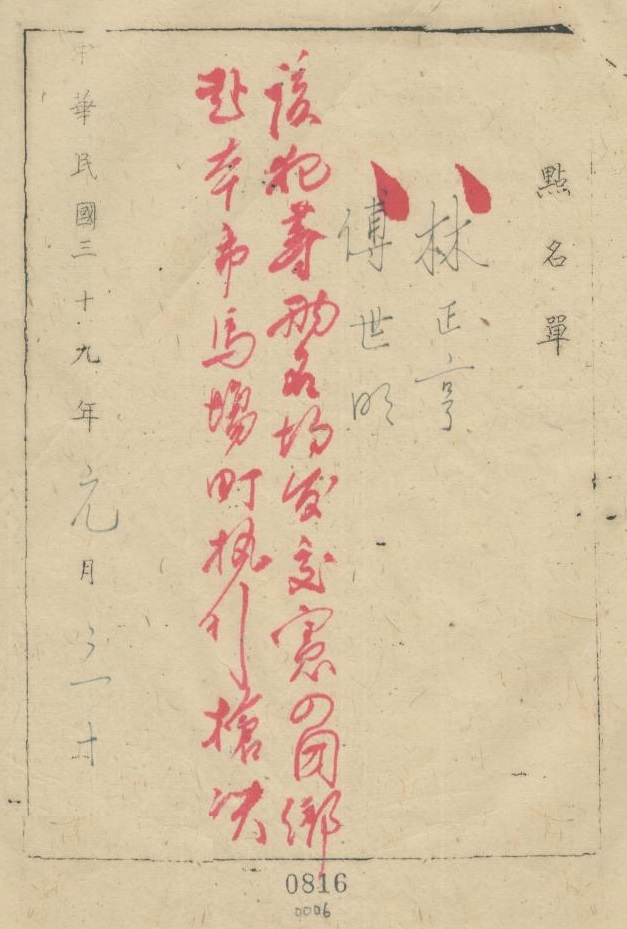 點名單
林正亨
傅世明
該犯等形名均發交憲四团綁
赴本市馬場町执行槍決
中華民國三十九年元月卅一日
0816
0006